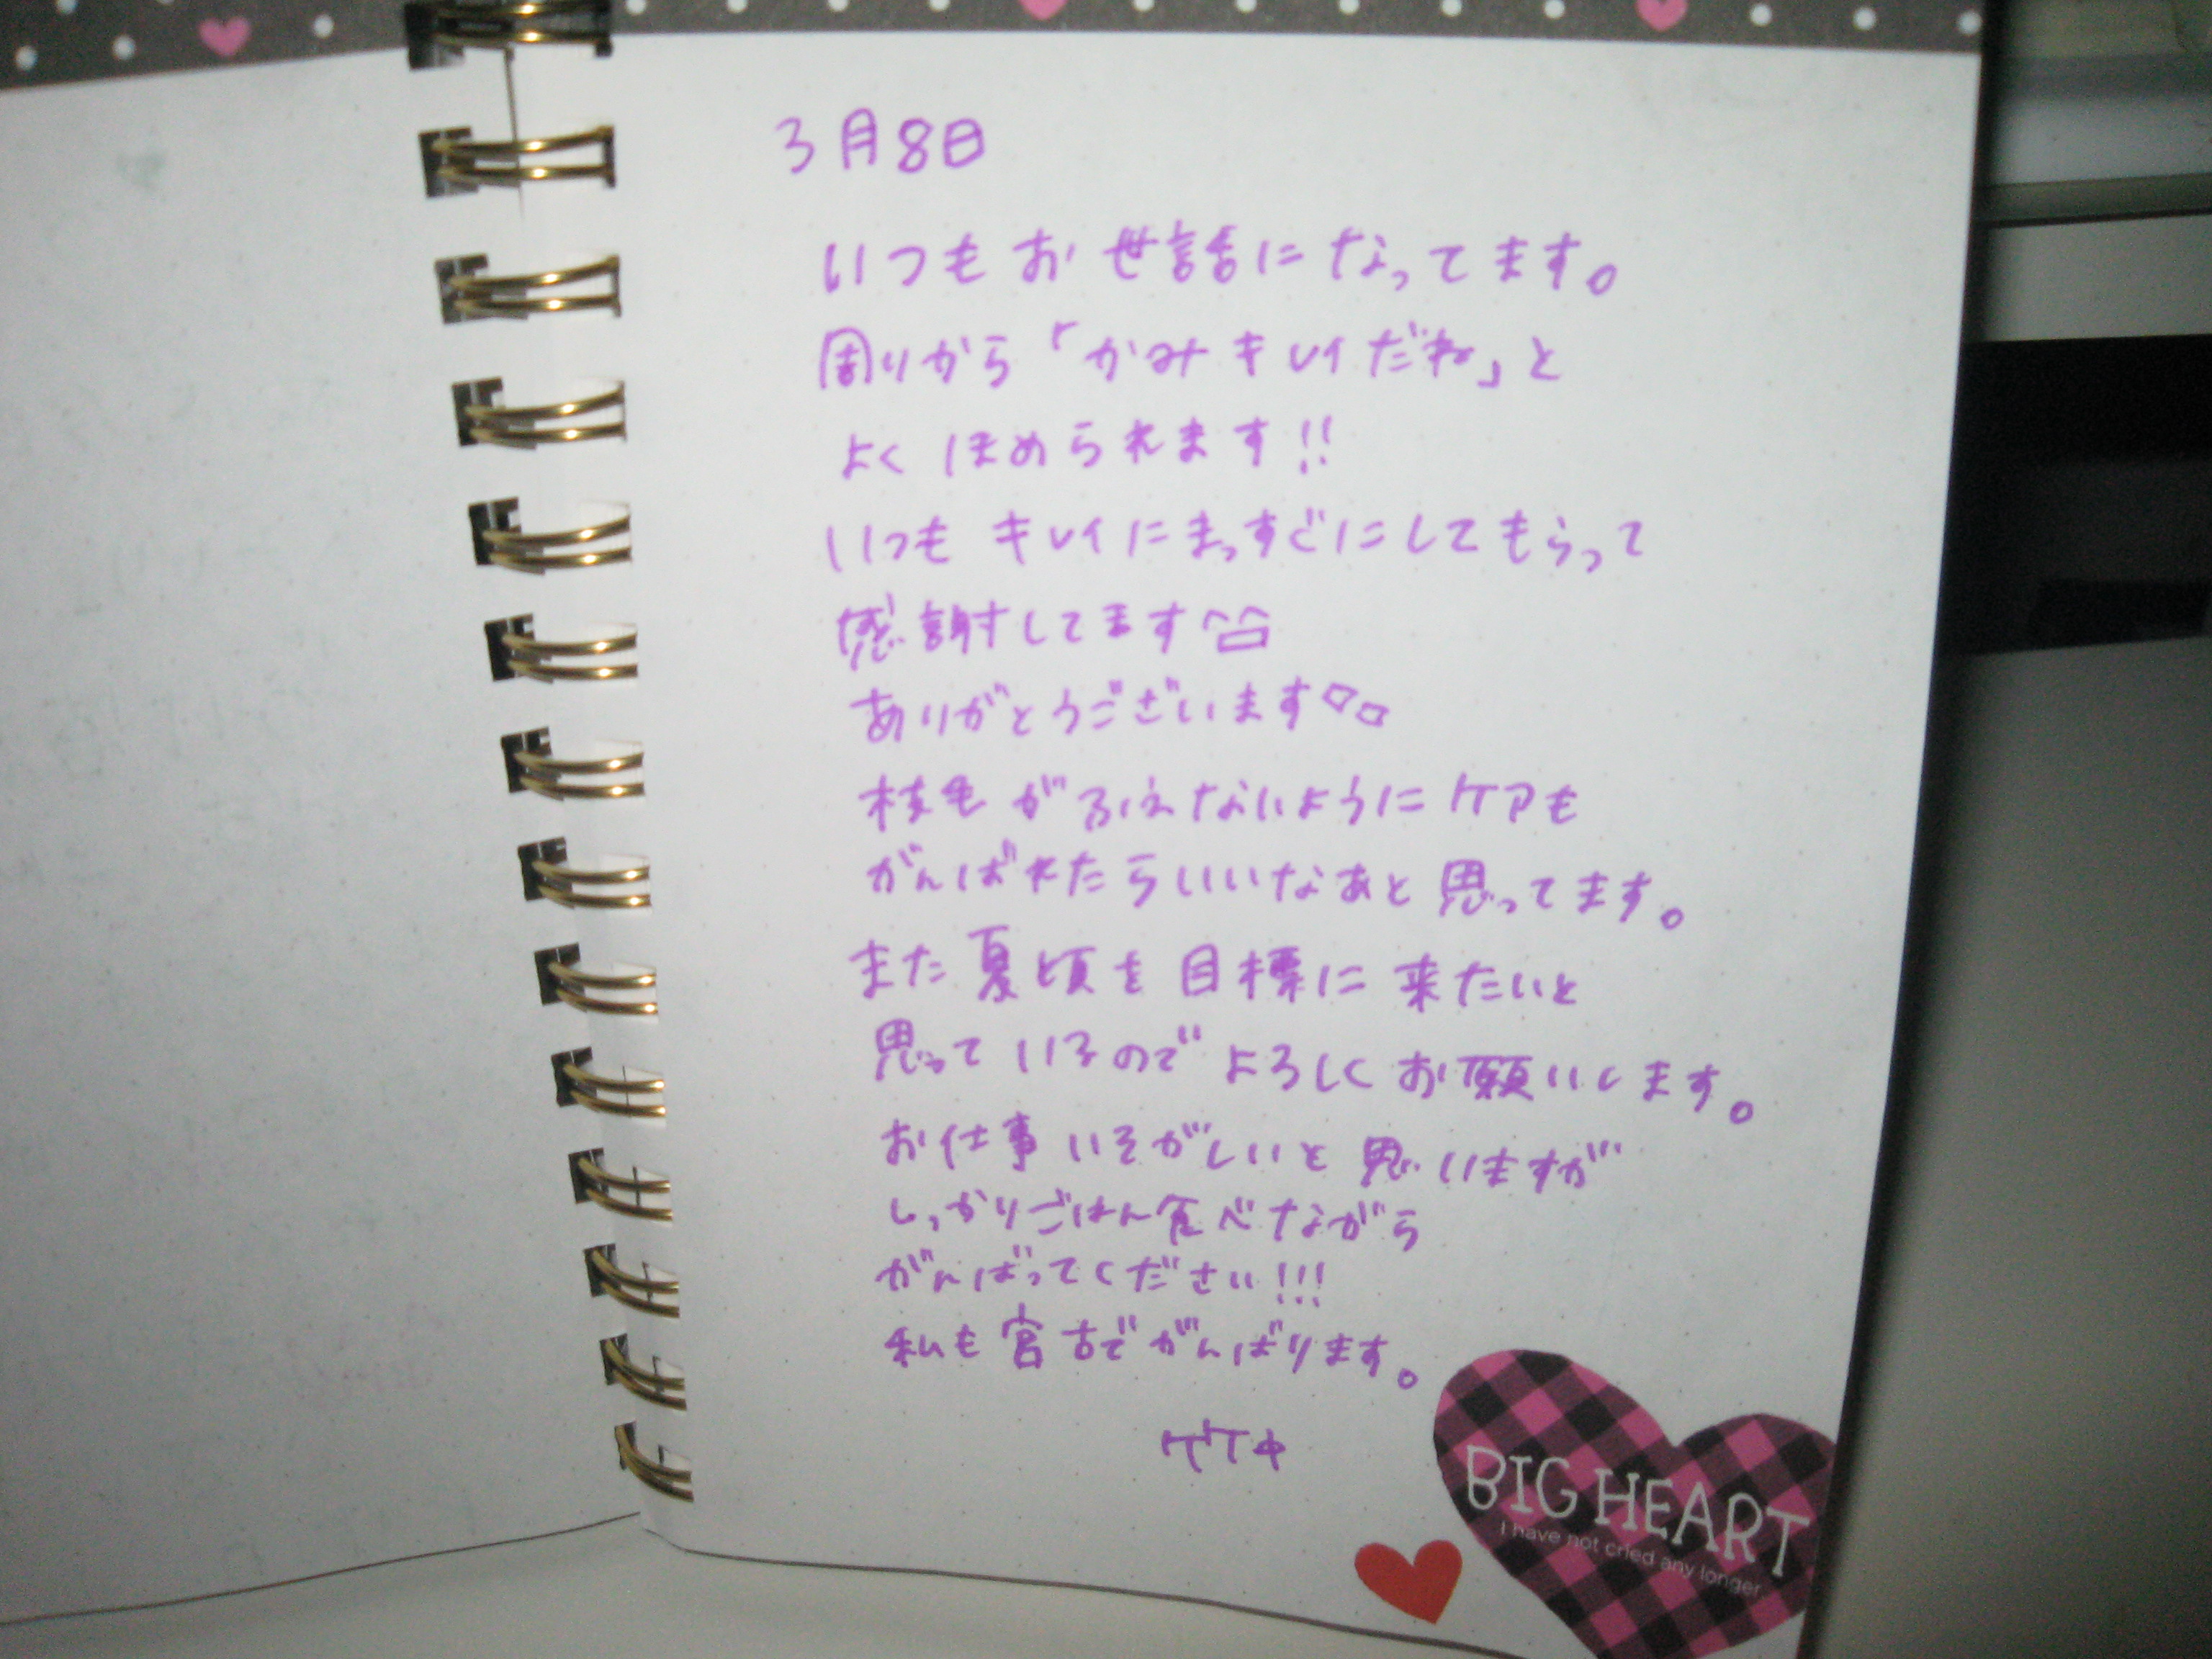 3月8日
いつもお世話になってます。
周りから「かみキレイだね」と
よくほめられます!!
いつもキレイにまっすぐにしてもらって
感謝してます
ありがとうございます
枝毛がふえないようにケアも
がんばれたらいいなあと思ってます。
また夏頃を目標に来たいと
思っているのでよろしくお願いします。
お仕事いそがしいと思いますが
しっかりごはん食べながら
がんばってください!!!
私も宮古でがんばります。
BIG HEART
I have not cried any longer